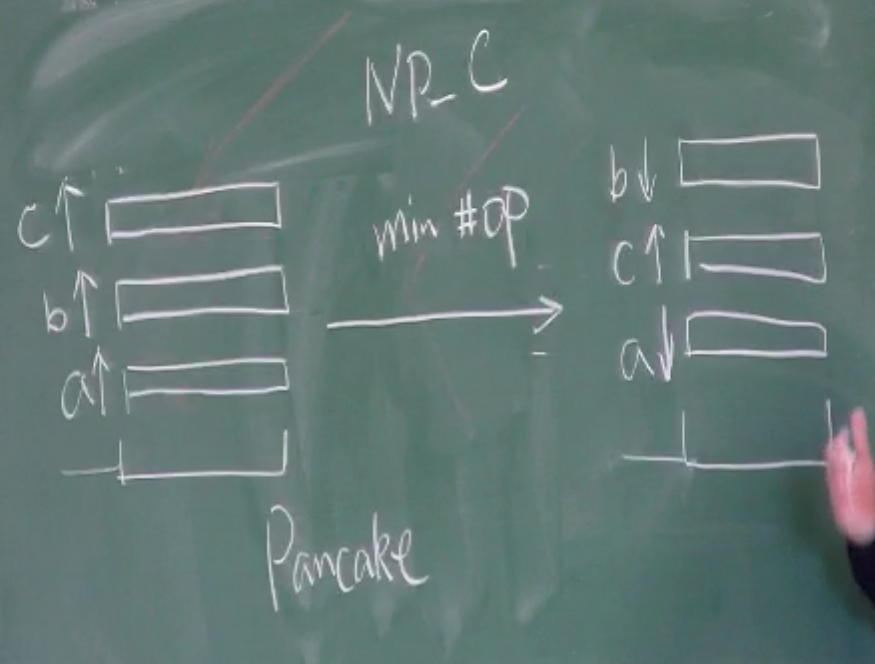 NP-C
c↑
b↑
a↑
min #op
b↓
c↑
a↓
Pancake